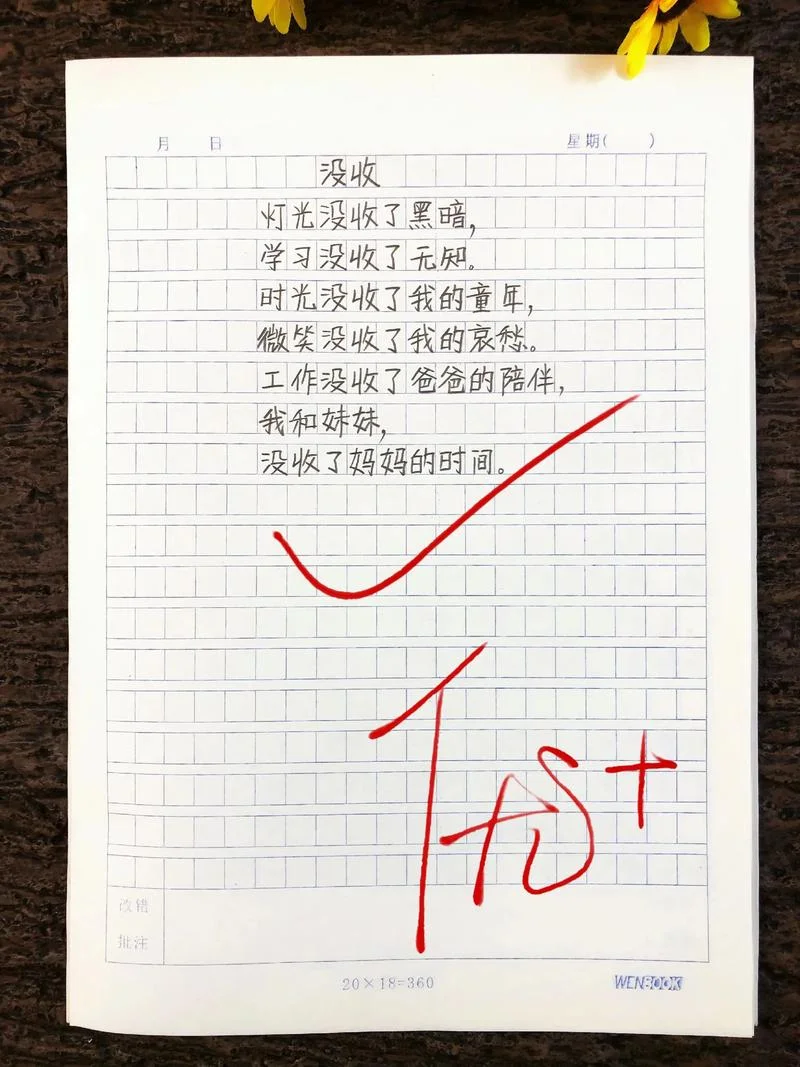 月 日 星期( )
没收
灯光没收了黑暗,
学习没收了无知。
时光没收了我的童年,
微笑没收了我的哀愁。
工作没收了爸爸的陪伴,
我和妹妹,
没收了妈妈的时间。
优+
改错
批注
20×18=360 WENBOOK